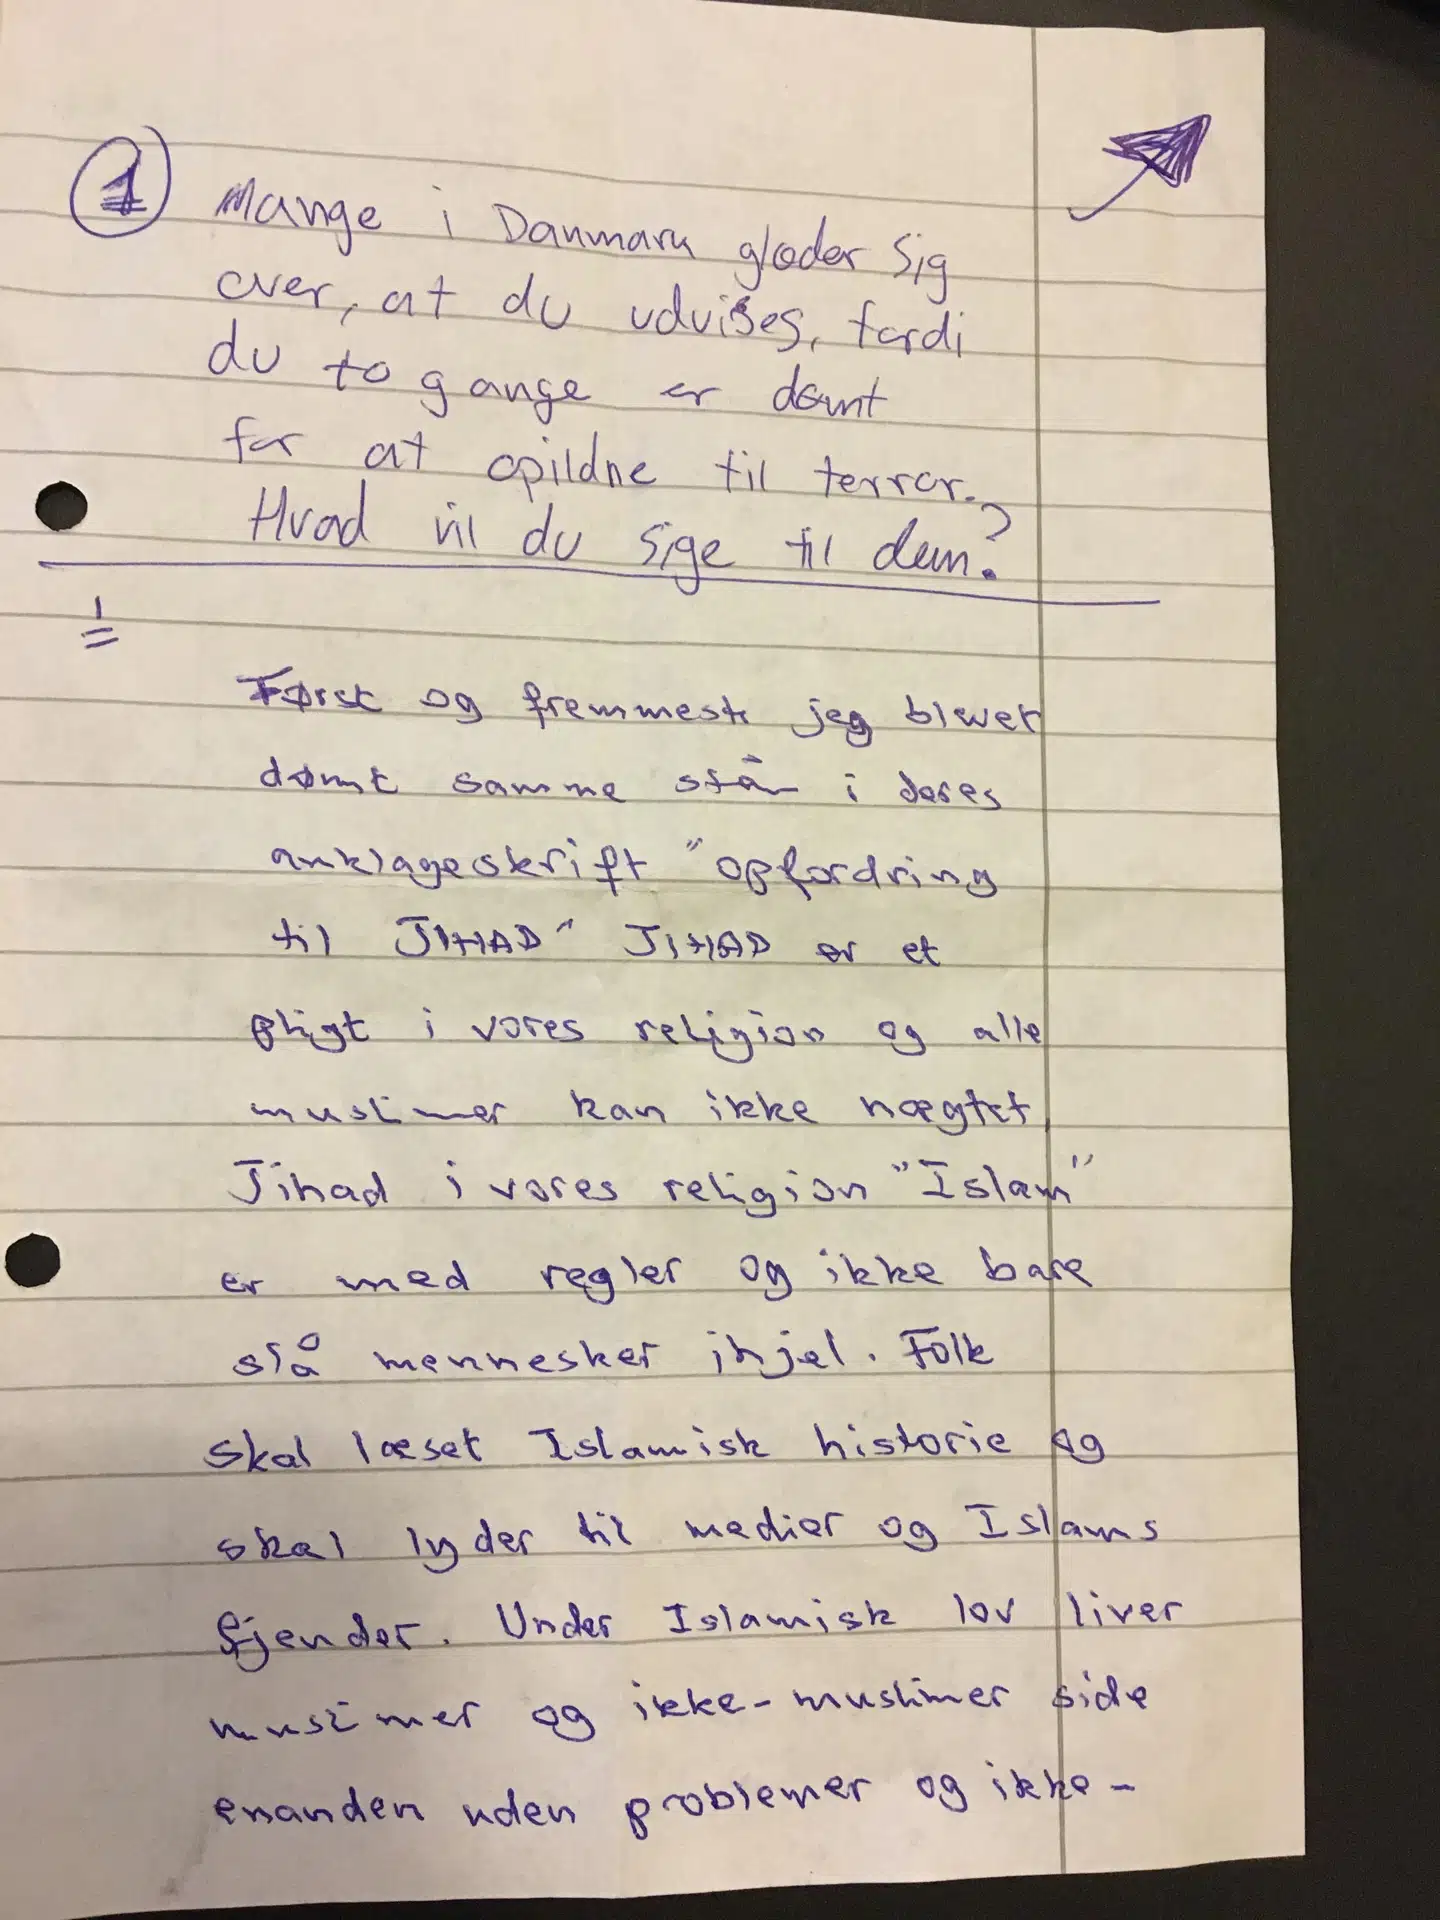 1 Mange i Danmark glæder sig
over, at du udvises, fordi
du to gange er dømt
for at opildne til terror.
Hvad vil du sige til dem?
Først og fremmest jeg blevet
dømt samme står i deres
anklageskrift "opfordring
til JIHAD" JIHAD er et
pligt i vores religion og alle
muslimer kan ikke nægtet,
Jihad i vores religion "Islam"
er med regler og ikke bare
slå mennesker ihjel. Folk
skal læset Islamisk historie og
skal lyder til medier og Islams
fjender. Under Islamisk lov liver
muslimer og ikke-muslimer side
enanden uden problemer og ikke-